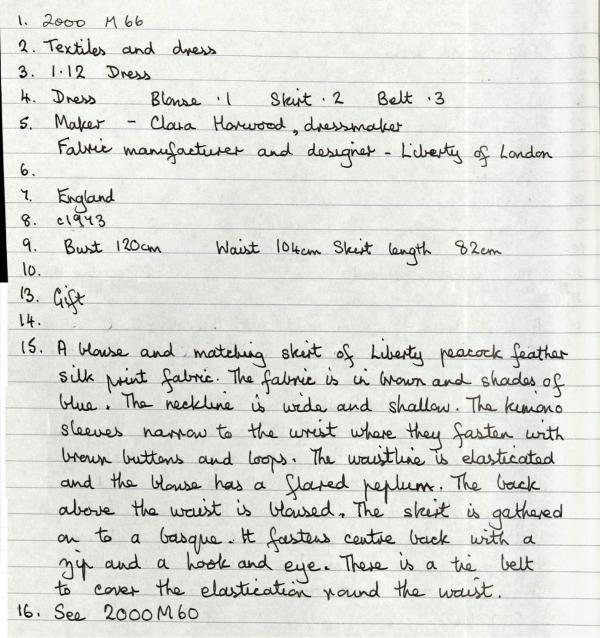 1. 2000 M 66
2. Textiles and dress
3. 1.12 Dress
4. Dress Blouse .1 Skirt .2 Belt .3
5. Maker - Clara Horwood, dressmaker
Fabric manufacturer and designer - Liberty of London
6.
7. England
8. c1973
9. Bust 120cm Waist 104cm Skirt length 82cm
10.
13. Gift
14.
15. A blouse and matching skirt of Liberty peacock feather
silk print fabric. The fabric is in brown and shades of
blue. The neckline is wide and shallow. The kimono
sleeves narrow to the wrist where they fasten with
brown buttons and loops. The waistline is elasticated
and the blouse has a flared peplum. The back
above the waist is bloused. The skirt is gathered
on to a basque. It fastens centre back with a
zip and a hook and eye. There is a tie belt
to cover the elastication round the waist.
16. See 2000M60